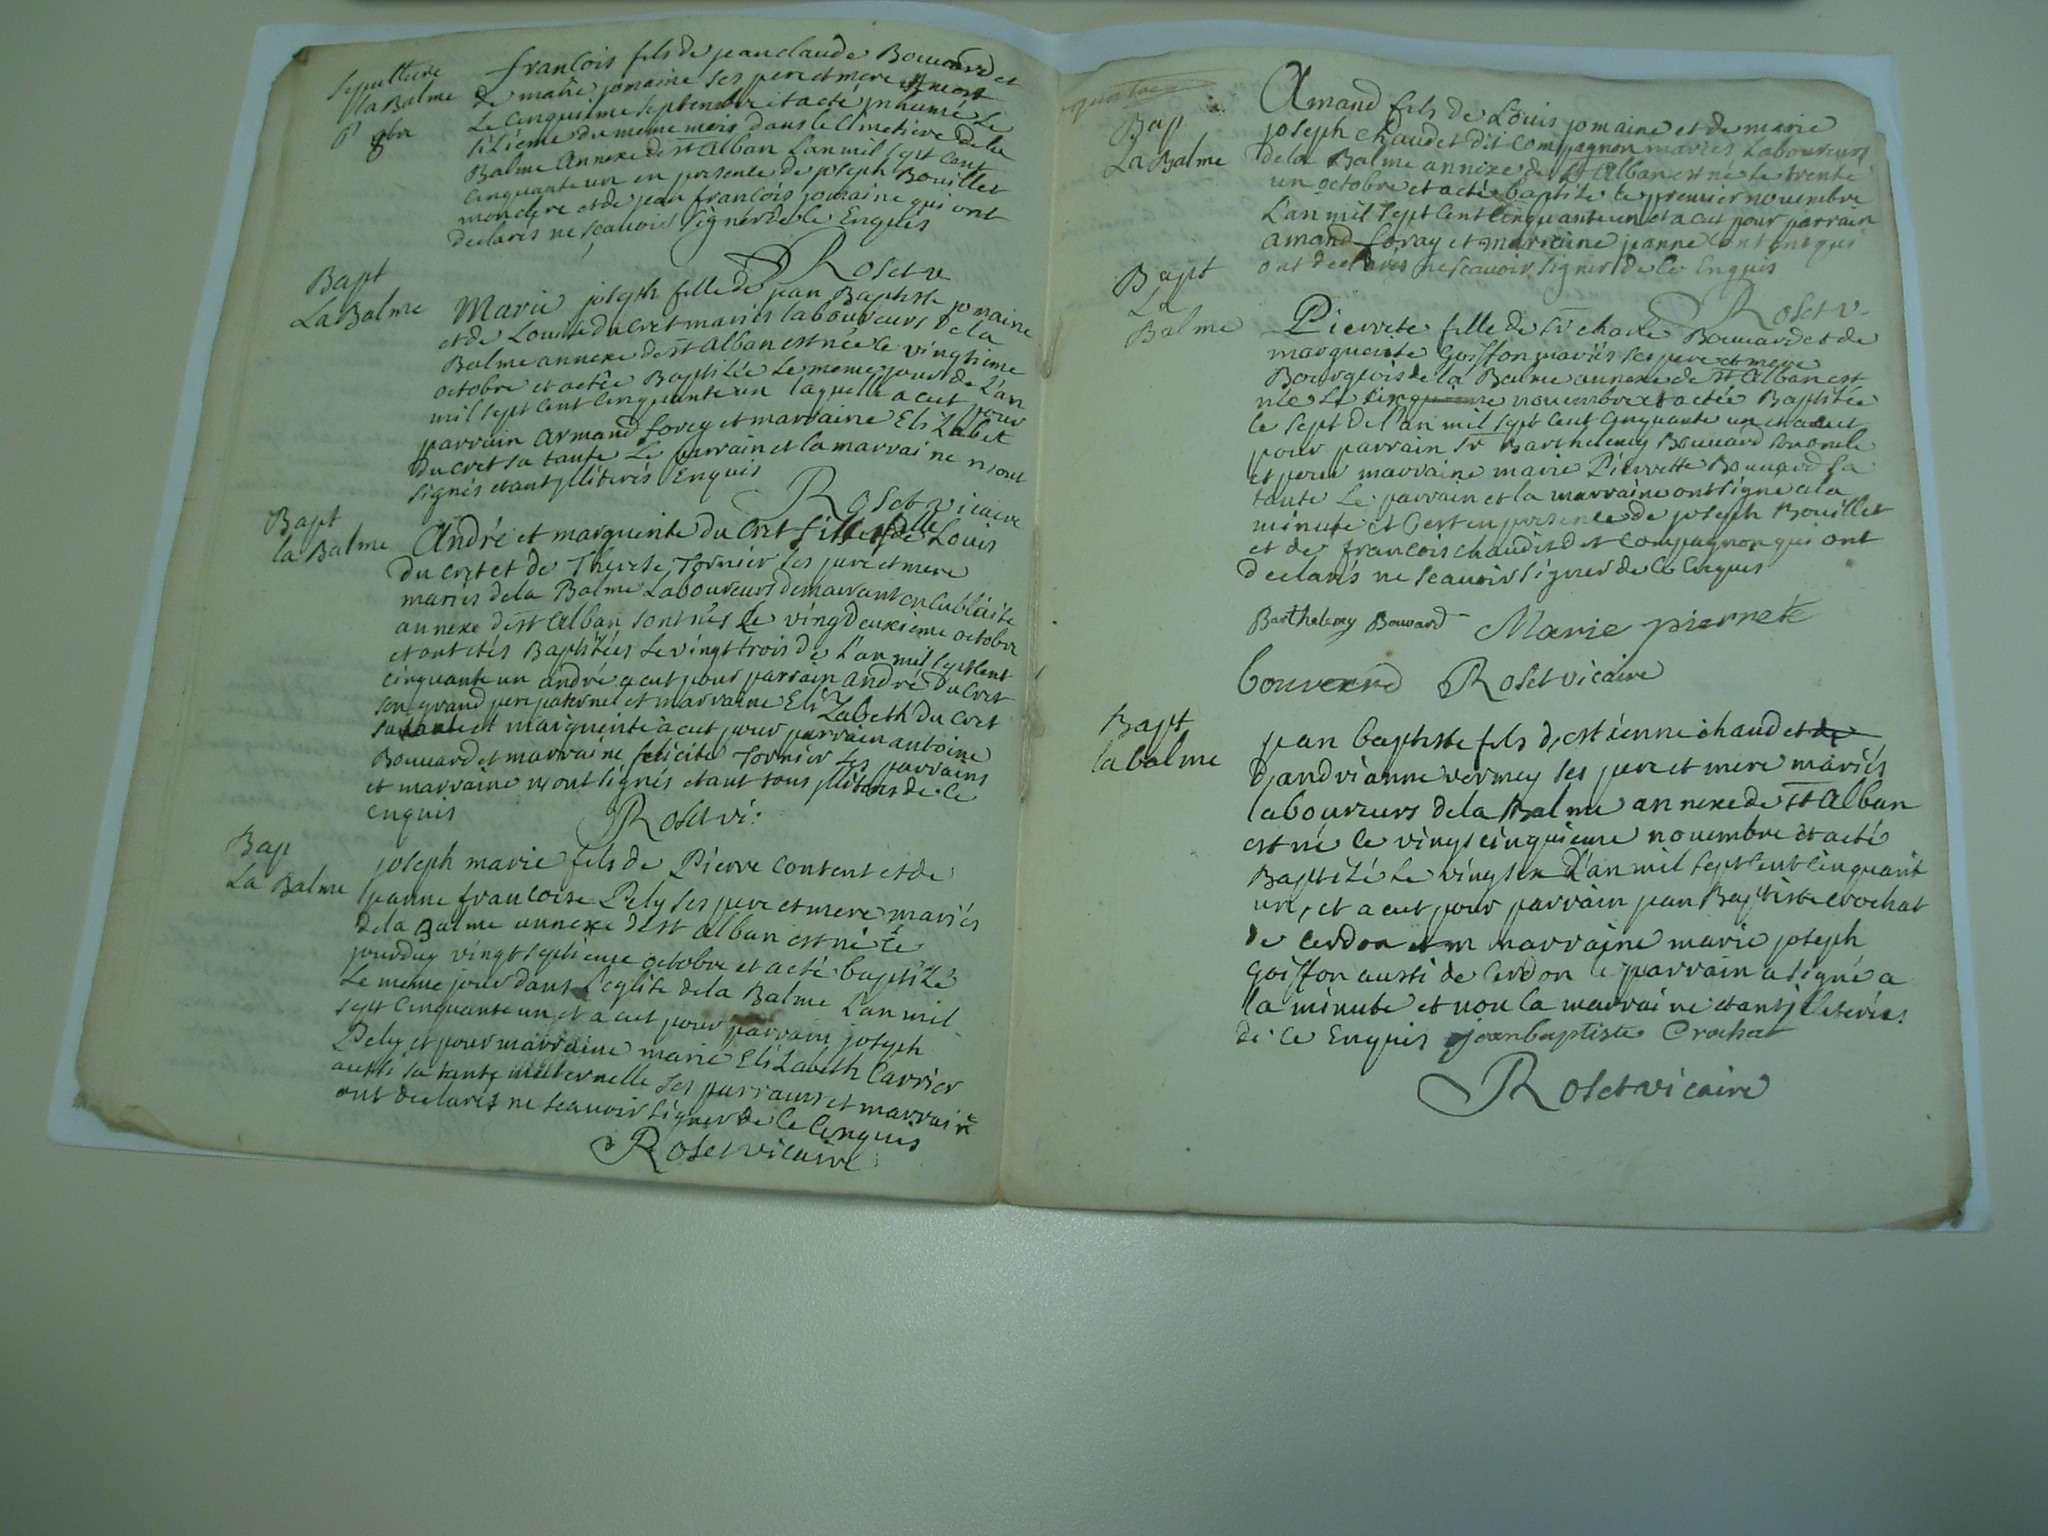 Sepulture
la Balme
françois fils de jean claude Bouvard et
de marie jomaine ses pere et mere est mort
Le cinquieme septembre et a été jnhumé Le
siziéme du meme mois dans le Cimetiere de la
Balme Annexe de st Alban L'an mil sept Cent
Cinquante un en presence de joseph Bouillet
et de jean françois jomaine qui ont
declarés ne scavoir signér de ce Enquis
Roset v
Bapt
La Balme
Marie joseph fille de jean Baptiste jomaine
et de Louise du cret mariés laboureurs de la
Balme annexe de st Alban est née le vingtieme
octobre et a étée Baptisée Le meme jour de L'an
mil sept Cent Cinquante un laquelle a eut pour
parrain armand forey et marraine Elizabet
du cret sa tante Le parrain et la marraine n'ont
signés etant jlliterés Enquis
Roset vicaire
Bapt
la Balme
André et marguerite du cret fille de Louis
du cret et de Therese Tornier ses pere et mere
mariés de la Balme Laboureurs demeurant en
annexe de st Alban sont nés le vingdeuxieme octobre
et ont étés Baptisées Le vingt trois de L'an mil sept cent
cinquante un andré a eut pour parrain andré Du cret
son grand pere paternel et marraine Elizabeth du cret
sa tante et marguerite a eut pour parrain antoine
Bouvard et marraine felicite Tornier Les parrains
et marraine n'ont signés etant tous jlliterés de ce
enquis
Roset vi:
Bap
La Balme
joseph marie fils de Pierre content et de
jeanne francoise Pely ses pere et mere mariés
de la Balme annexe de st Alban est né le
jourduy vingt septieme octobre et a été baptizé
Le meme jour dans L'eglise de la Balme L'an mil
sept Cinquante un et a eut pour parrain joseph
Pely et pour marraine marie Elizabeth Carrier
aussi sa tante maternelle Les parrains et marraine
ont declarés ne scavoir signer de ce Enquis
Roset vicaire
Bap
La Balme
Amand fils de Louis jomaine et de marie
joseph chaudet dit Compagnon mariés Laboureurs
de la Balme annexe de st Alban est né le trente
un octobre et a été baptisé le premier novembre
L'an mil sept Cent Cinquante un et a eut pour parrain
amand foray et marraine jeanne content qui
ont declarés ne scavoir signer de ce Enquis
Roset v.
Bapt
La
Balme
Pierrete fille de sr Bouvard et de
marguerite Goiffon mariés ses pere et mere
Bourgeois de la Balme annexe de st Alban est
née Le cinquieme novembre et a étée Baptisée
le sept de L'an mil sept Cent Cinquante un et a eut
pour parrain sr Barthelemy Bouvard son oncle
et pour marraine marie Pierrette Bouvard sa
tante Le parrain et la marraine ont signé a la
minute et C'est en presence de joseph Bouillet
et de francois chaudet dit Compagnon qui ont
declarés ne scavoir signer de ce Enquis
Barthelemy Bouvard Marie pierrete
bouverd Roset vicaire
Bapt
la balme
jean baptiste fils d'estienne chaudet de
d'andrianne vermey ses pere et mere mariés
laboureurs de la Balme annexe de st Alban
est né le vingt cinquieme novembre et a été
Baptizé Le vingt six L'an mil sept cent cinquante
un, et a eut pour parrain jean Baptiste crochat
de Cerdon et marraine marie joseph
Goiffon aussi de Cerdon le parrain a signé a
la minute et non la marraine etant jlliterées
de ce Enquis jeanbaptiste Crochat
Roset vicaire